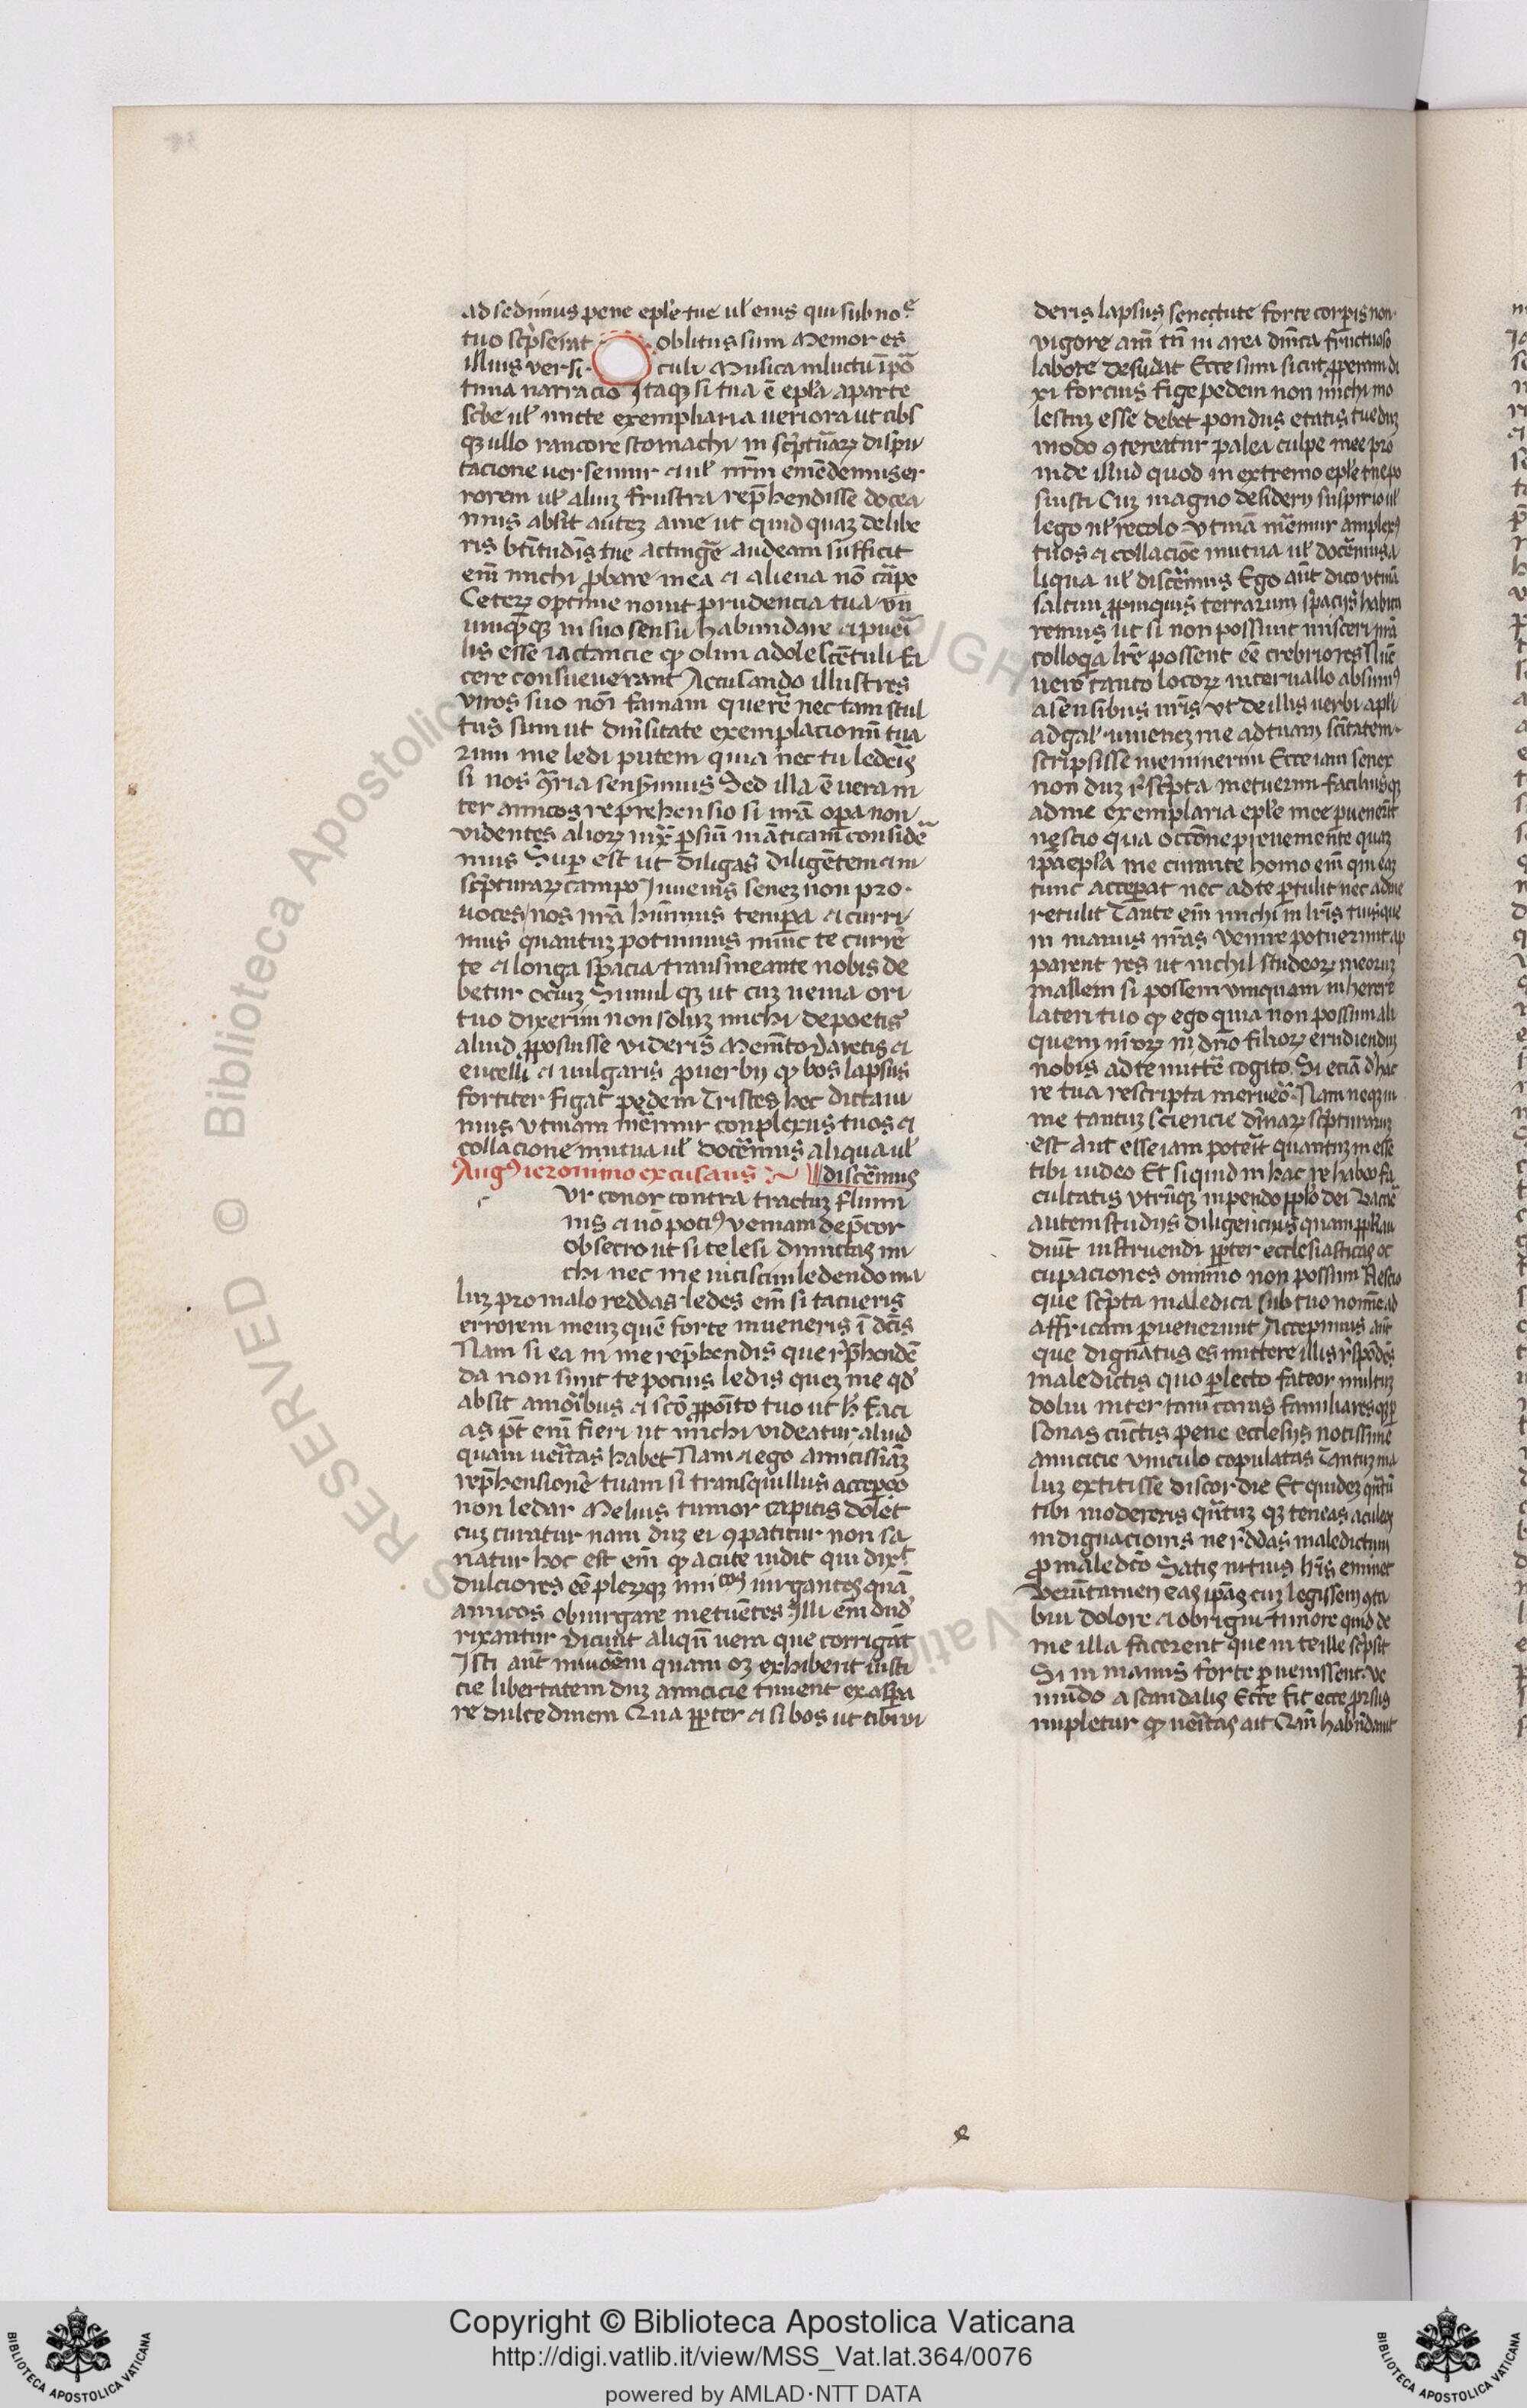 ad sedimus pene ep̄le tue ul̄ eius qui sub noīe
tuo scp̄serat oblitus sum Memor es
illius versi culi Musica in luctu īpoꝛ
tuna narracio Itaqꝫ si tua ē ep̄la aparte
sc̄be ul̄ mitte exemplaria ueriora ut abs
qꝫ ullo rancore stomachi in scp̄turaꝝ dispu
tacione uersemur et ul̄ nr̄m emēdemus er
rorem ul̄ aliuꝫ frustra rep̄hendisse docea
mus absit auteꝫ a me ut quid quaꝫ de libe
ris btītudīs tue actingē audeam sufficit
em̄ michi ꝓbare mea et aliena nō cāpe
Ceteꝝ optime nouit prudencia tua vnū
unuqꝫqꝫ in suo sensu habundare et pueri
lis esse iactancie qꝫ olim adolescētuli fa
cere consueuerant Accusando illustres
viros suo noī famam querē nec tam stul
tus sum ut diūsitate explanacionū tua
rum me ledi putem quia nec tu ledeis
si nos ꝯ̄ria senserimus Sed illa ē uera in
ter amicos reprehensio si nr̄a opera non
videntes alioꝝ iuxͣ p̄siū māticam consideᷓ
mus Sup̄ est ut diligas diligētem et in
scp̄turaꝝ campo Iuuenis seneꝫ non pro
uoces nos nr̄a huīmus tempora et curri
mus quantuꝫ potuimus nunc te currē
te et longa spacia transmeante nobis de
betur ociuꝫ Simul qꝫ ut cuꝫ uenia ori
tuo dixerim non soluꝫ michi de poetis
aliud ꝓposuisse videris Memīto daretis et
eucelli et uulgaris ꝓuerbij qꝫ bos lapsus
fortiter figat pedem Tristes hec dictaui
mus vtinam mērimur conplexus tuos et
collacione mutua ul̄ docēmus aliqua ul̄
Augꝰ ieronimo excusans discēmus
Vr conor contra tractuꝫ flumi
nis et nō pociꝰ veniam dep̄cor
obsecro ut si te lesi dimittas mi
chi nec me uiciscim ledendo ma
luꝫ pro malo reddas ledes em̄ si tacueris
errorem meuꝫ quē forte inueneris ī dc̄is
Nam si ea in me rep̄hendis que rp̄hendē
da non sunt te pocius ledis queꝫ me qd̄
absit a moribus et scō ꝓpoīto tuo ut h̄ faci
as pt̄ em̄ fieri ut michi videatur aliud
quam ueritas habet Nam et ego amicissimāꝫ
rep̄hensionē tuam si transquillus accepero
non ledar Melius tumor capitis dolet
cuꝫ curatur nam duꝫ ei ꝯpatitur non sa
natur hoc est em̄ qꝫ acute uidit qui dixͭ
dulciores eē pleꝝqꝫ inimicos iurgantes quā
amicos obiurgare metuētes Illi em̄ dud
rixantur dicunt aliqn̄ uera que corrigāt
Isti aut̄ minoēm quam oꝫ exhibent iusti
cie libertatem duꝫ amicicie timent exaspera
re dulcedinem Qua ꝓpter et si bos ut tibi vi
deris lapsus senectute forte corpis non
vigore aīī tn̄ in area dn̄ica fructuoso
labore desudat Ecce sum si cut ꝑperam di
xi forcius fige pedem non michi mo
lestuꝫ esse debet pondus etatis tue duꝫ
modo ꝯtereatur palea culpe mee pro
inde illud quod in extremo ep̄le tue po
suisti Cuꝫ magno desiderij suspirio ul̄
lego ul̄ recolo Vtinā mērimur amplexꝰ
tuos et collacioē mutua ul̄ docēmus a
liqua ul̄ discēmus Ego aut̄ dico vtinā
saltim ꝓpinquis terrarum spacijs habita
remus ut si non possunt misceri nr̄a
colloqͥa lr̄e possent eē crebriores Nūc
uero tanto locoꝝ interuallo absimꝰ
a sensibus nr̄is vt de illis uerbi apli
ad gal̄ iuueneꝫ me ad tuam scītatem
scripsisse meminerim Ecce iam senex
non duꝫ rescp̄ta metuerim facilius qꝫ
ad me exemplaria ep̄le mee puenerūt
nescio qua occōne preuemente quaꝫ
ip̄a epl̄a me curante homo em̄ qui eaꝫ
tunc acceperat nec ad te ꝑtulit nec ad me
retulit Tante em̄ michi in lr̄is tuis que
in manus nr̄as venire potuerunt ap
parent res ut nichil studioꝝ meoruꝫ
mallem si possem vmquam inherere
lateri tuo qꝫ ego quia non possum ali
quem nr̄oꝝ in dn̄o filioꝝ erudienduꝫ
nobis ad te mittē cogito Si eciā d̄ hac
re tua rescripta meruero Nam neqꝫ in
me tantuꝫ sciencie diuinaꝝ scp̄turaruꝫ
est aut esse iam poterit quantuꝫ inesse
tibi uideo Et si quid in hac re habeo fa
cultatis vtcūqꝫ inpendo ppl̄o dei Vacare
autem studijs diligencius quam ppl̄i au
diunt instruendi ꝓpter ecclesiasticas oc
cupaciones omnino non possum Nescio
que scp̄ta maledica sub tuo nomīe ad
affricam peruenerunt Accepimus aut̄
que dignatus es mittere illis respōdēs
maledictis quo perlecto fateor multuꝫ
dolui inter tam caras familiares qꝫ per
sonas cunctis pene ecclesijs notissime
amicicie vinculo copulatas Tantuꝫ ma
luꝫ extitisse discordie Et quideꝫ qn̄tū
tibi modereris qn̄tuꝫ qꝫ teneas aculeos
indignacionis ne reddas maledictum
ꝓ maledicto Satis intuis lr̄is eminet
Verūtamen eas ip̄as cuꝫ legissem ꝯta
bui dolore et obrigui timore quid de
me illa facerent que in te ille scp̄sit
Si in manus forte ꝑuenissent Ve
mūdo a scandalis Ecce fit ecce prorsus
inpletur qꝫ ueritas ait Qm̄ habūdauit